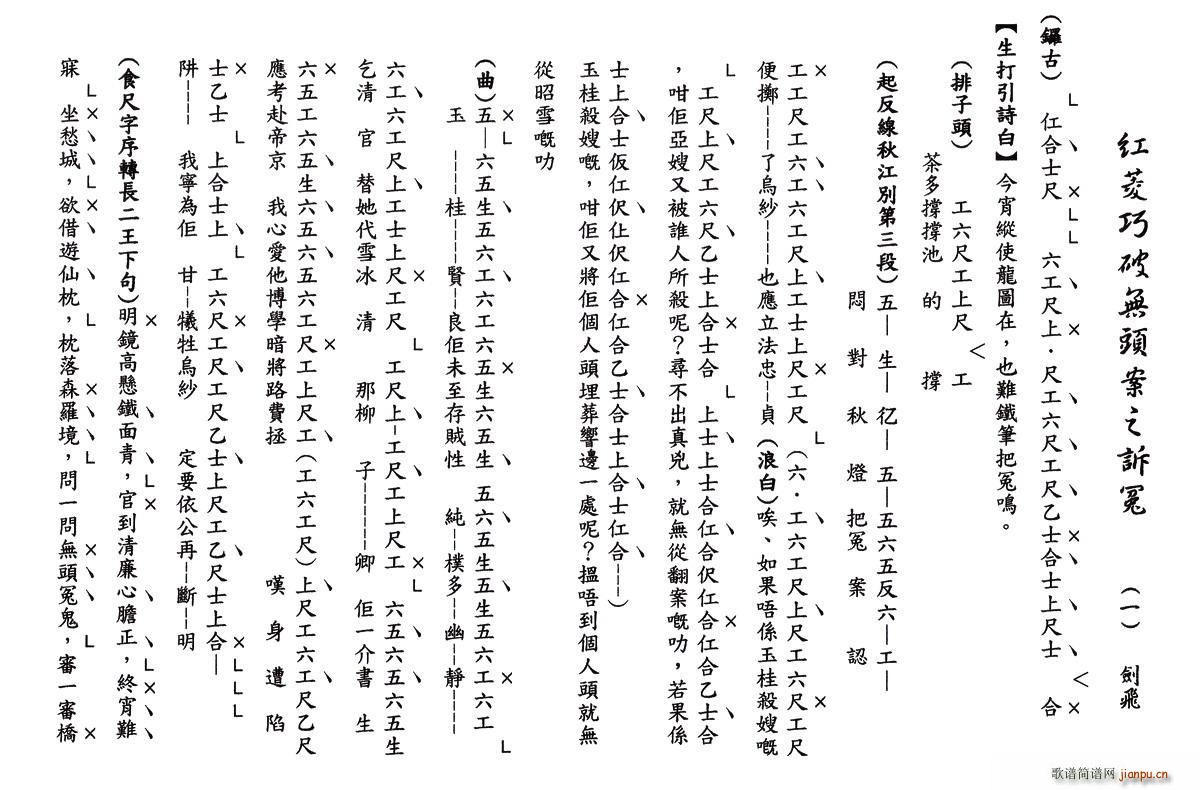 紅菱巧破無頭案之訴冤 (一) 劍飛
(鑼古) 仁合士尺 六工尺上．尺工六尺工尺乙士合士上尺士 合
【生打引詩白】今宵縱使龍圖在，也難鐵筆把冤鳴。
(排子頭) 工六尺工上尺 工
茶多撐撐池 的 撐
(起反線秋江別第三段) 五— 生— 亿— 五—五六五反六—工—
悶 對 秋 燈 把冤 案 認
工工尺工六工六工尺上工士上尺工尺 (六．工六工尺上尺工六尺工尺
便擲---了烏紗---也應立法忠--貞 (浪白)唉、如果唔係玉桂殺嫂嘅
工尺上尺工六尺乙士上合士合 上士上士合仁合伬仁合仁合乙士合
，咁佢亞嫂又被誰人所殺呢？尋不出真兇，就無從翻案嘅叻，若果係
士上合士仮仁伬仩伬仁合仜合乙士合士上合士仁合---)
玉桂殺嫂嘅，咁佢又將佢個人頭埋葬響邊一處呢？搵唔到個人頭就無
從昭雪嘅叻
(曲)五—六五生五六工六工六五生六五生 五六五生五生五六工六工
玉 ----桂----賢--良佢未至存賊性 純--樸多--幽--靜----
六工六工尺上工士上尺工尺 工尺上-工尺工上尺工 六五六五六五生
乞清 官 替她代雪冰 清 那柳 子-------卿 佢一介書 生
六五工六五生六五六五六工尺工上尺工 (工六工尺)上尺工六工尺乙尺
應考赴帝京 我心愛他博學暗將路費拯 嘆 身 遭 陷
士乙士 上合士上 工六尺工尺工尺乙士上尺工乙尺士上合—
阱---- 我寧為佢 甘--犧牲烏紗 定要依公再--斷--明
(食尺字序轉長二王下句)明鏡高懸鐵面青，官到清廉心膽正，終宵難
寐 坐愁城，欲借遊仙枕，枕落森羅境，問一問無頭冤鬼，審一審橋
歌谱简谱网 jianpu.cn